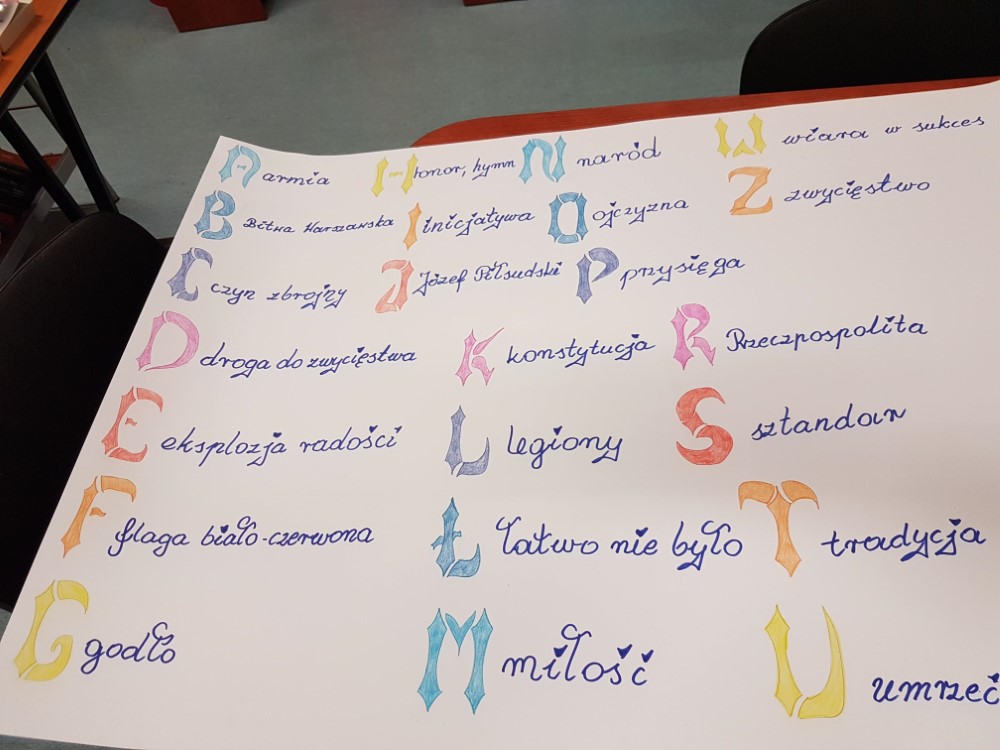 A armia
B Bitwa Warszawska
C czyn zbrojny
D droga do zwycięstwa
E eksplozja radości
F flaga biało-czerwona
G godło
Honor, hymn
I inicjatywa
J Józef Piłsudski
K konstytucja
L legiony
Ł łatwo nie było
M miłość
N naród
O ojczyzna
P przysięga
R Rzeczpospolita
S sztandar
T tradycja
U umrzeć
W wiara w sukces
Z zwycięstwo